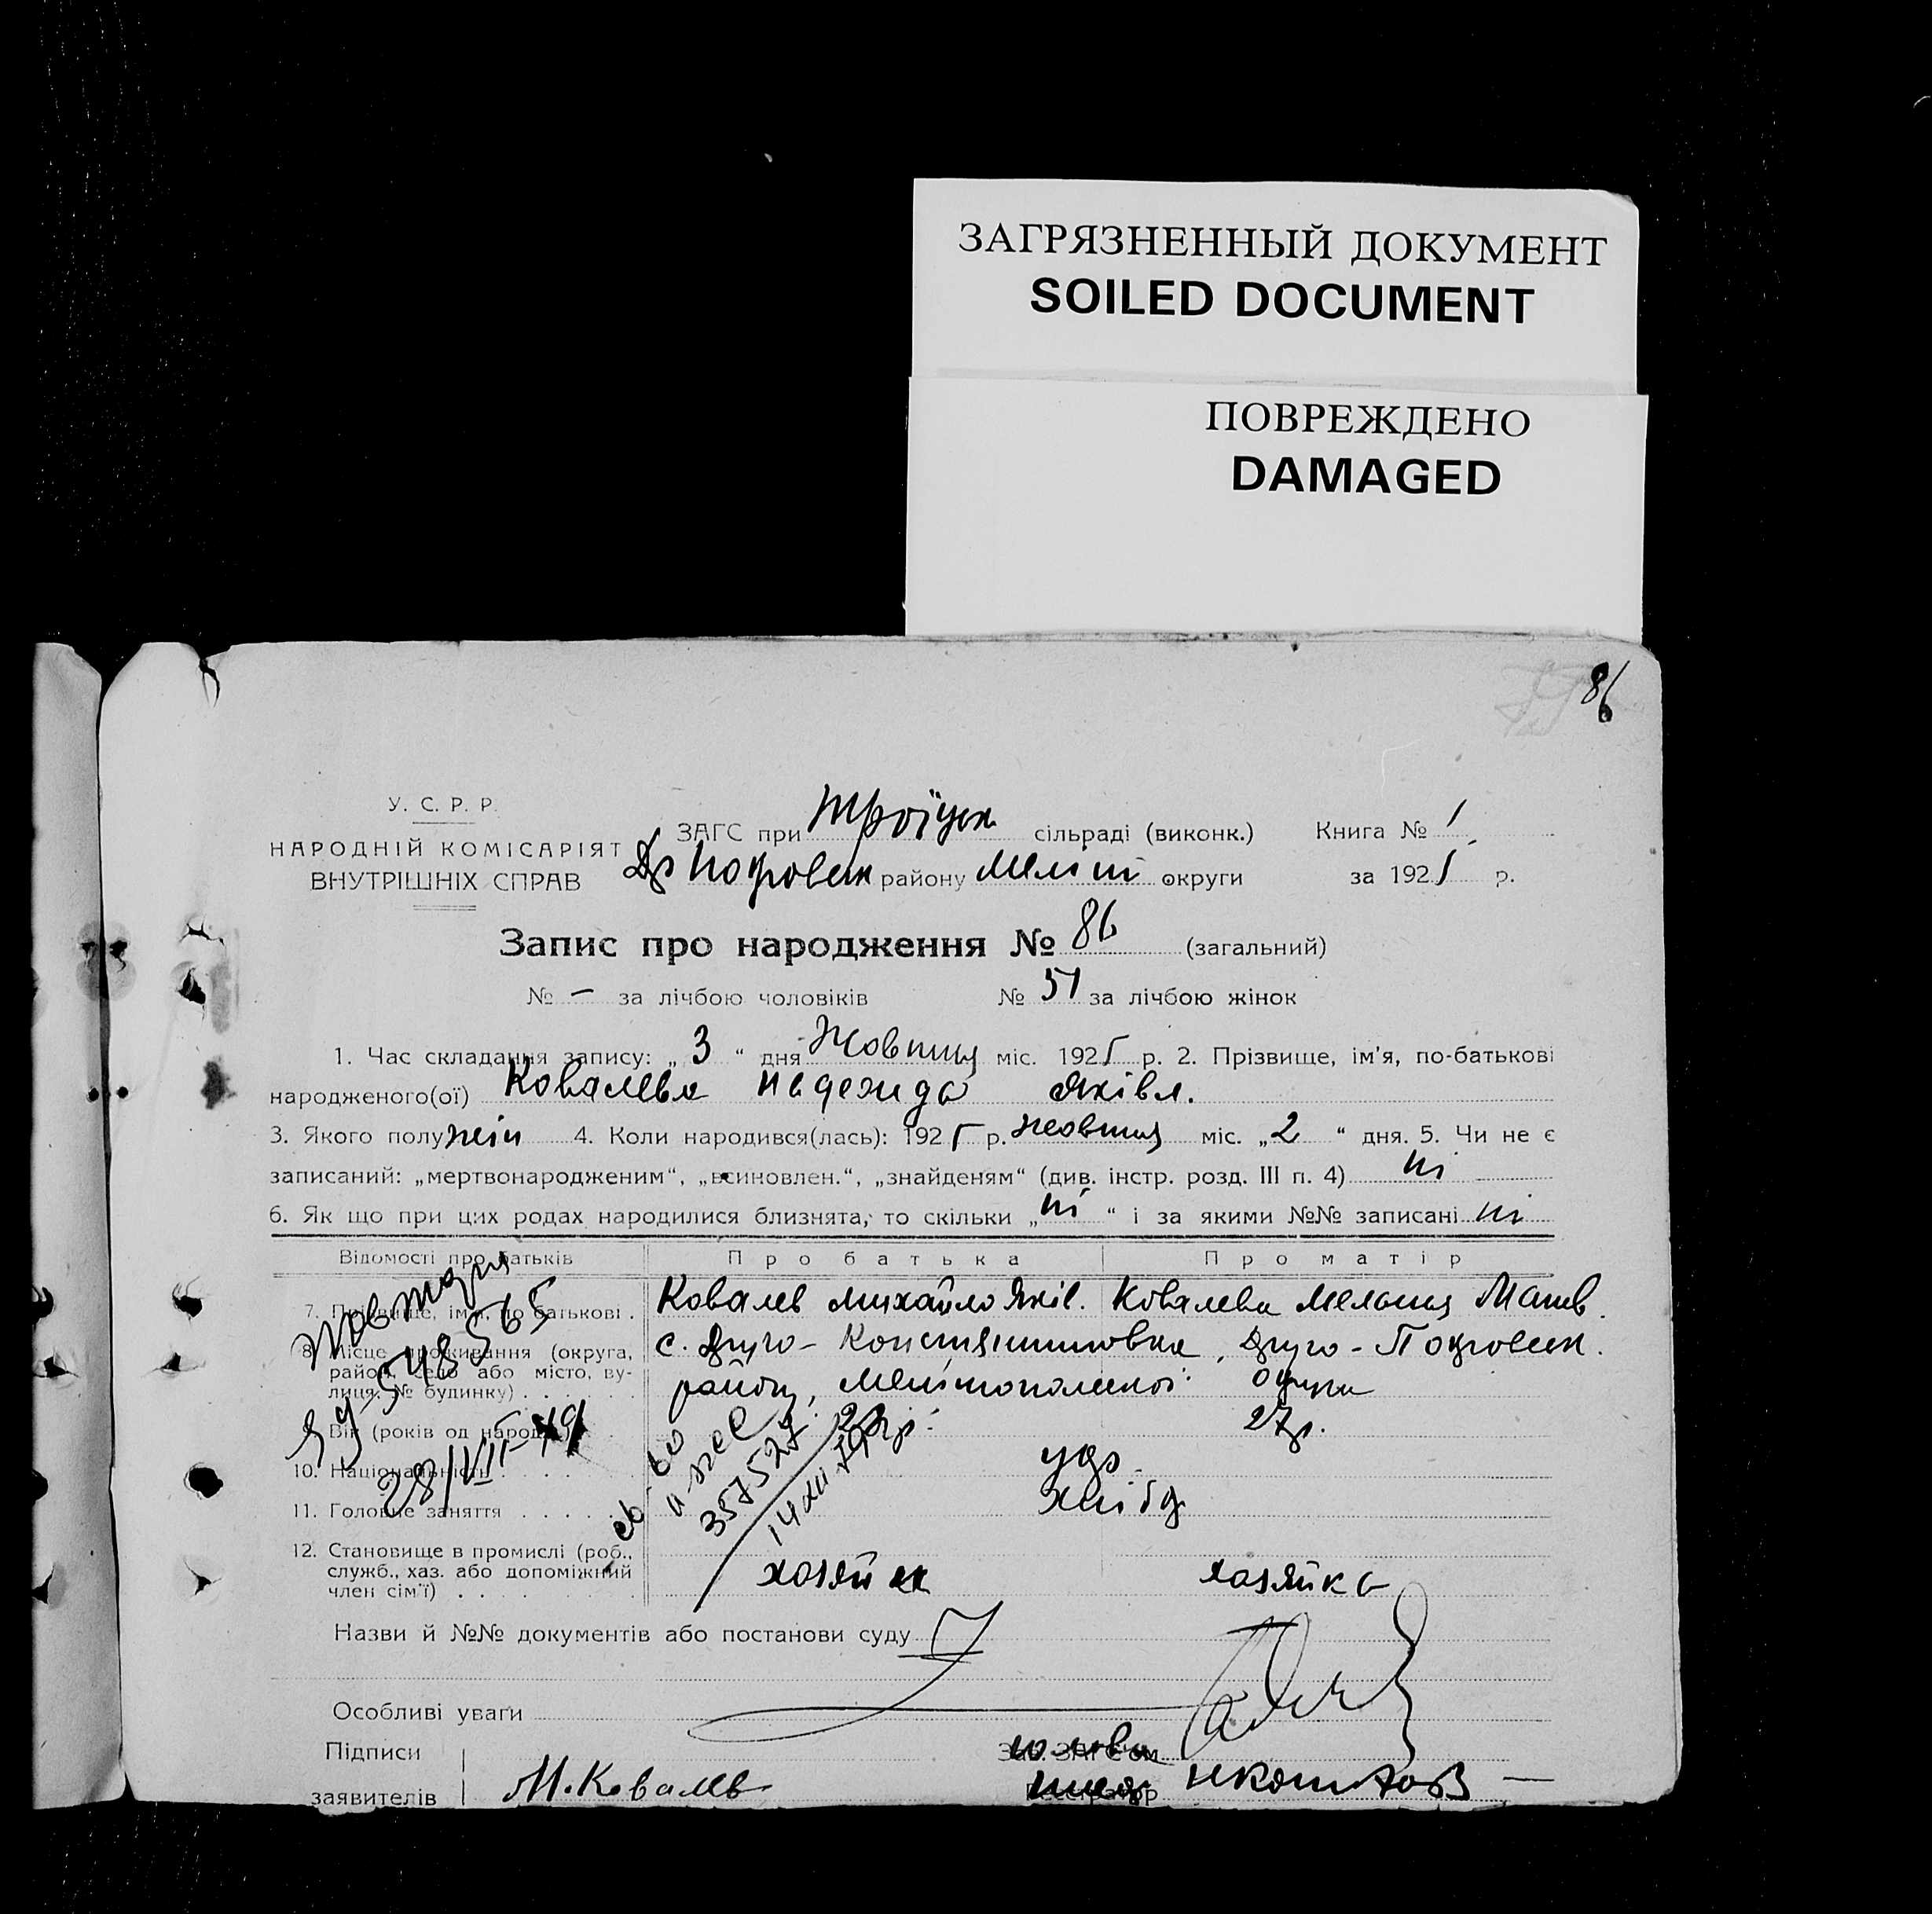 ЗАГРЯЗНЕННЫЙ ДОКУМЕНТ
SOILED DOCUMENT
ПОВРЕЖДЕНО
DAMAGED
86
У. С. Р. Р.
НАРОДНІЙ КОМІСАРІЯТ
ВНУТРІШНІХ СПРАВ
ЗАГС при Троїцьк сільраді (виконк.) Книга № 1
Др Покровськ району Меліт округи за 1925 р.
Запис про народження № 86 (загальний)
№ – за лічбою чоловіків № 51 за лічбою жінок
1. Час складання запису: „ 3 “ дня Жовтня міс. 1925 р. 2. Прізвище, ім'я, по-батькові
народженого(ої) Ковалева Надежда Яківл.
3. Якого полу жін 4. Коли народився(лась): 1925 р. жовтня міс. „ 2 “ дня. 5. Чи не є
записаний: „мертвонародженим“, „всиновлен.“, „знайденям“ (див. інстр. розд. III п. 4) ні
6. Як що при цих родах народилися близнята, то скільки „ ні “ і за якими №№ записані ні
Відомості про батьків Про батька Про матір
7. Прізвище, ім'я, по батькові . Ковалев Михайло Яків. Ковалева Меланія Матв.
8. Місце проживання (округа, район, село або місто, вулиця, № будинку) с. Друго-Константиновка, Друго-Покровськ.
району, Мелітопольської округи
9. Вік (років од народж.) 27р.
10. Національність укр
11. Головне заняття хлібд
12. Становище в промислі (роб.,
служб., хаз. або допоміжний
член сім'ї) хазяйн хазяйка
548565
28/VII-49
357527
14 XII
Назви й №№ документів або постанови суду
Особливі уваги
Підписи
заявителів М. Ковалев
Зав. ЗАГС'ом голова